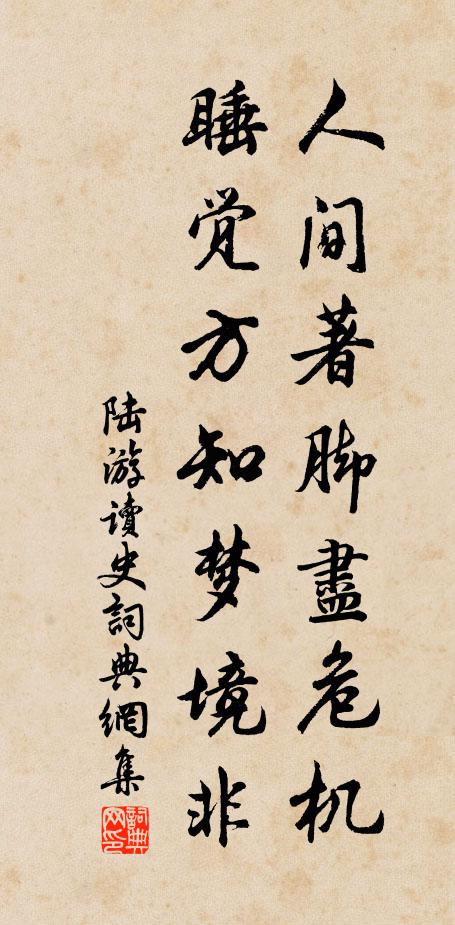 人间著脚盡危机
睡觉方知梦境非
陆游读史詞典網集
詞典网印